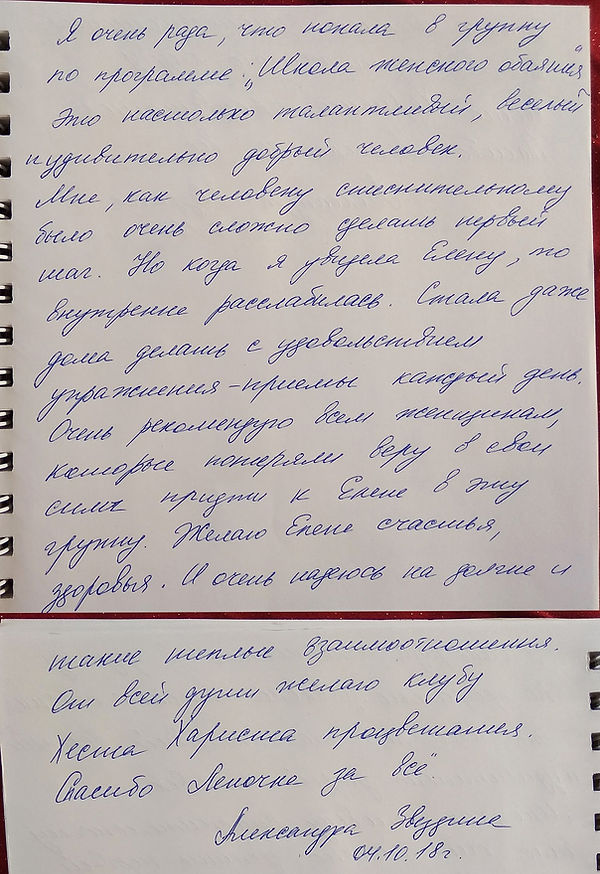 Я очень рада, что попала в группу
по программе: "Школа женского обаяния"
Это настолько талантливый, веселый
и удивительно добрый человек.
Мне, как человеку стеснительному
было очень сложно сделать первый
шаг. Но когда я увидела Елену, то
внутренне расслабилась. Стала даже
дома делать с удовольствием
упражнения-приемы каждый день.
Очень рекомендую всем женщинам,
которые потеряли веру в свои
силы придти к Елене в эту
группу. Желаю Елене счастья,
здоровья. И очень надеюсь на долгие и
такие теплые взаимоотношения.
От всей души желаю клубу
Хеста Хариста процветания.
Спасибо Леночке за всё.
Александра
04.10.18г.